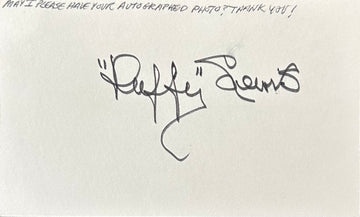 MAY I PLEASE HAVE YOUR AUTOGRAPHED PHOTO? THANK YOU!
"Duffy" Lewis